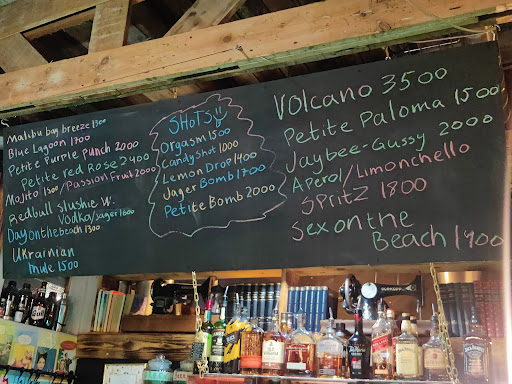 Malibu bay breeze 1300
Blue Lagoon 1700
Petite Purple Punch 2000
Petite red Rose 2400
Mojito 1500/Passion Fruit 2000
Redbull Slushie W.
Vodka/Jager 1600
Day on the beach 1300
Ukrainian
Mule 1500
SHOTS!!
Orgasm 1500
Candyshot 1000
Lemon Drop 1400
Jager Bomb 1700
Petite Bomb 2000
Volcano 3500
Petite Paloma 1500
Jaybee-Gussy 2000
Aperol/Limonchello
SPritz 1800
Sex on the
Beach 1400